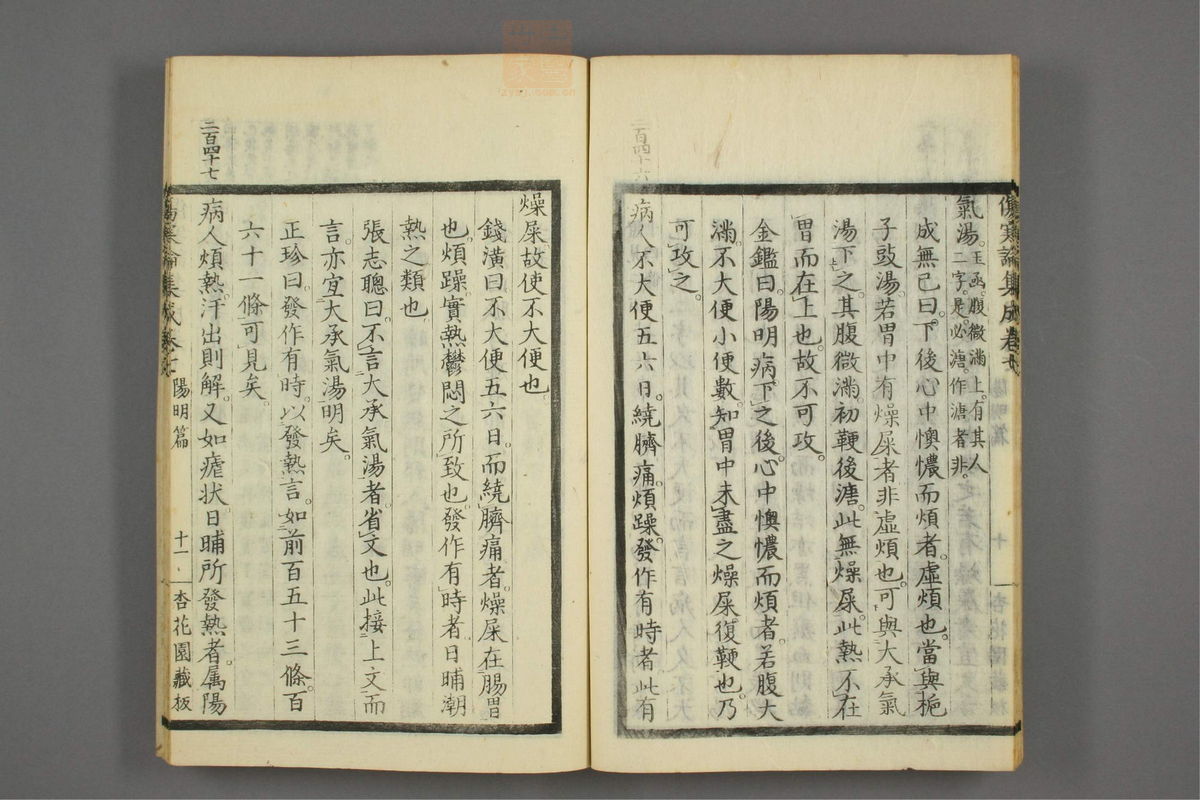 傷寒論集成卷七
氣湯。玉函。腹微滿上。有其人二字。是。必溏。作溏者非。
成無己曰。下後心中懊憹而煩者。虛煩也。當與梔
子豉湯。若胃中有燥屎者。非虛煩也。可與大承氣
湯下之。其腹微滿。初鞕後溏。此無燥屎。此熱不在
胃而在上也。故不可攻。
金鑑曰。陽明病。下之後。心中懊憹而煩者。若腹大
滿。不大便。小便數。知胃中未盡之燥屎復鞕也。乃
可攻之。
二百四十六
病人不大便五六日。繞臍痛。煩躁。發作有時者。此有
燥屎。故使不大便也。
錢潢曰。不大便五六日。而繞臍痛者。燥屎在腸胃
也。煩躁。實熱鬱悶之所致也。發作有時者。日晡潮
熱之類也。
張志聰曰。不言大承氣湯者。省文也。此接上文而
言。亦宜大承氣湯明矣。
正珍曰。發作有時。以發熱言。如前百五十三條。百
六十一條。可見矣。
二百四十七
病人煩熱。汗出則解。又如瘧狀。日晡所發熱者。屬陽
傷寒論集成卷七 陽明篇 十一 杏花園藏板
zysj.com.cn